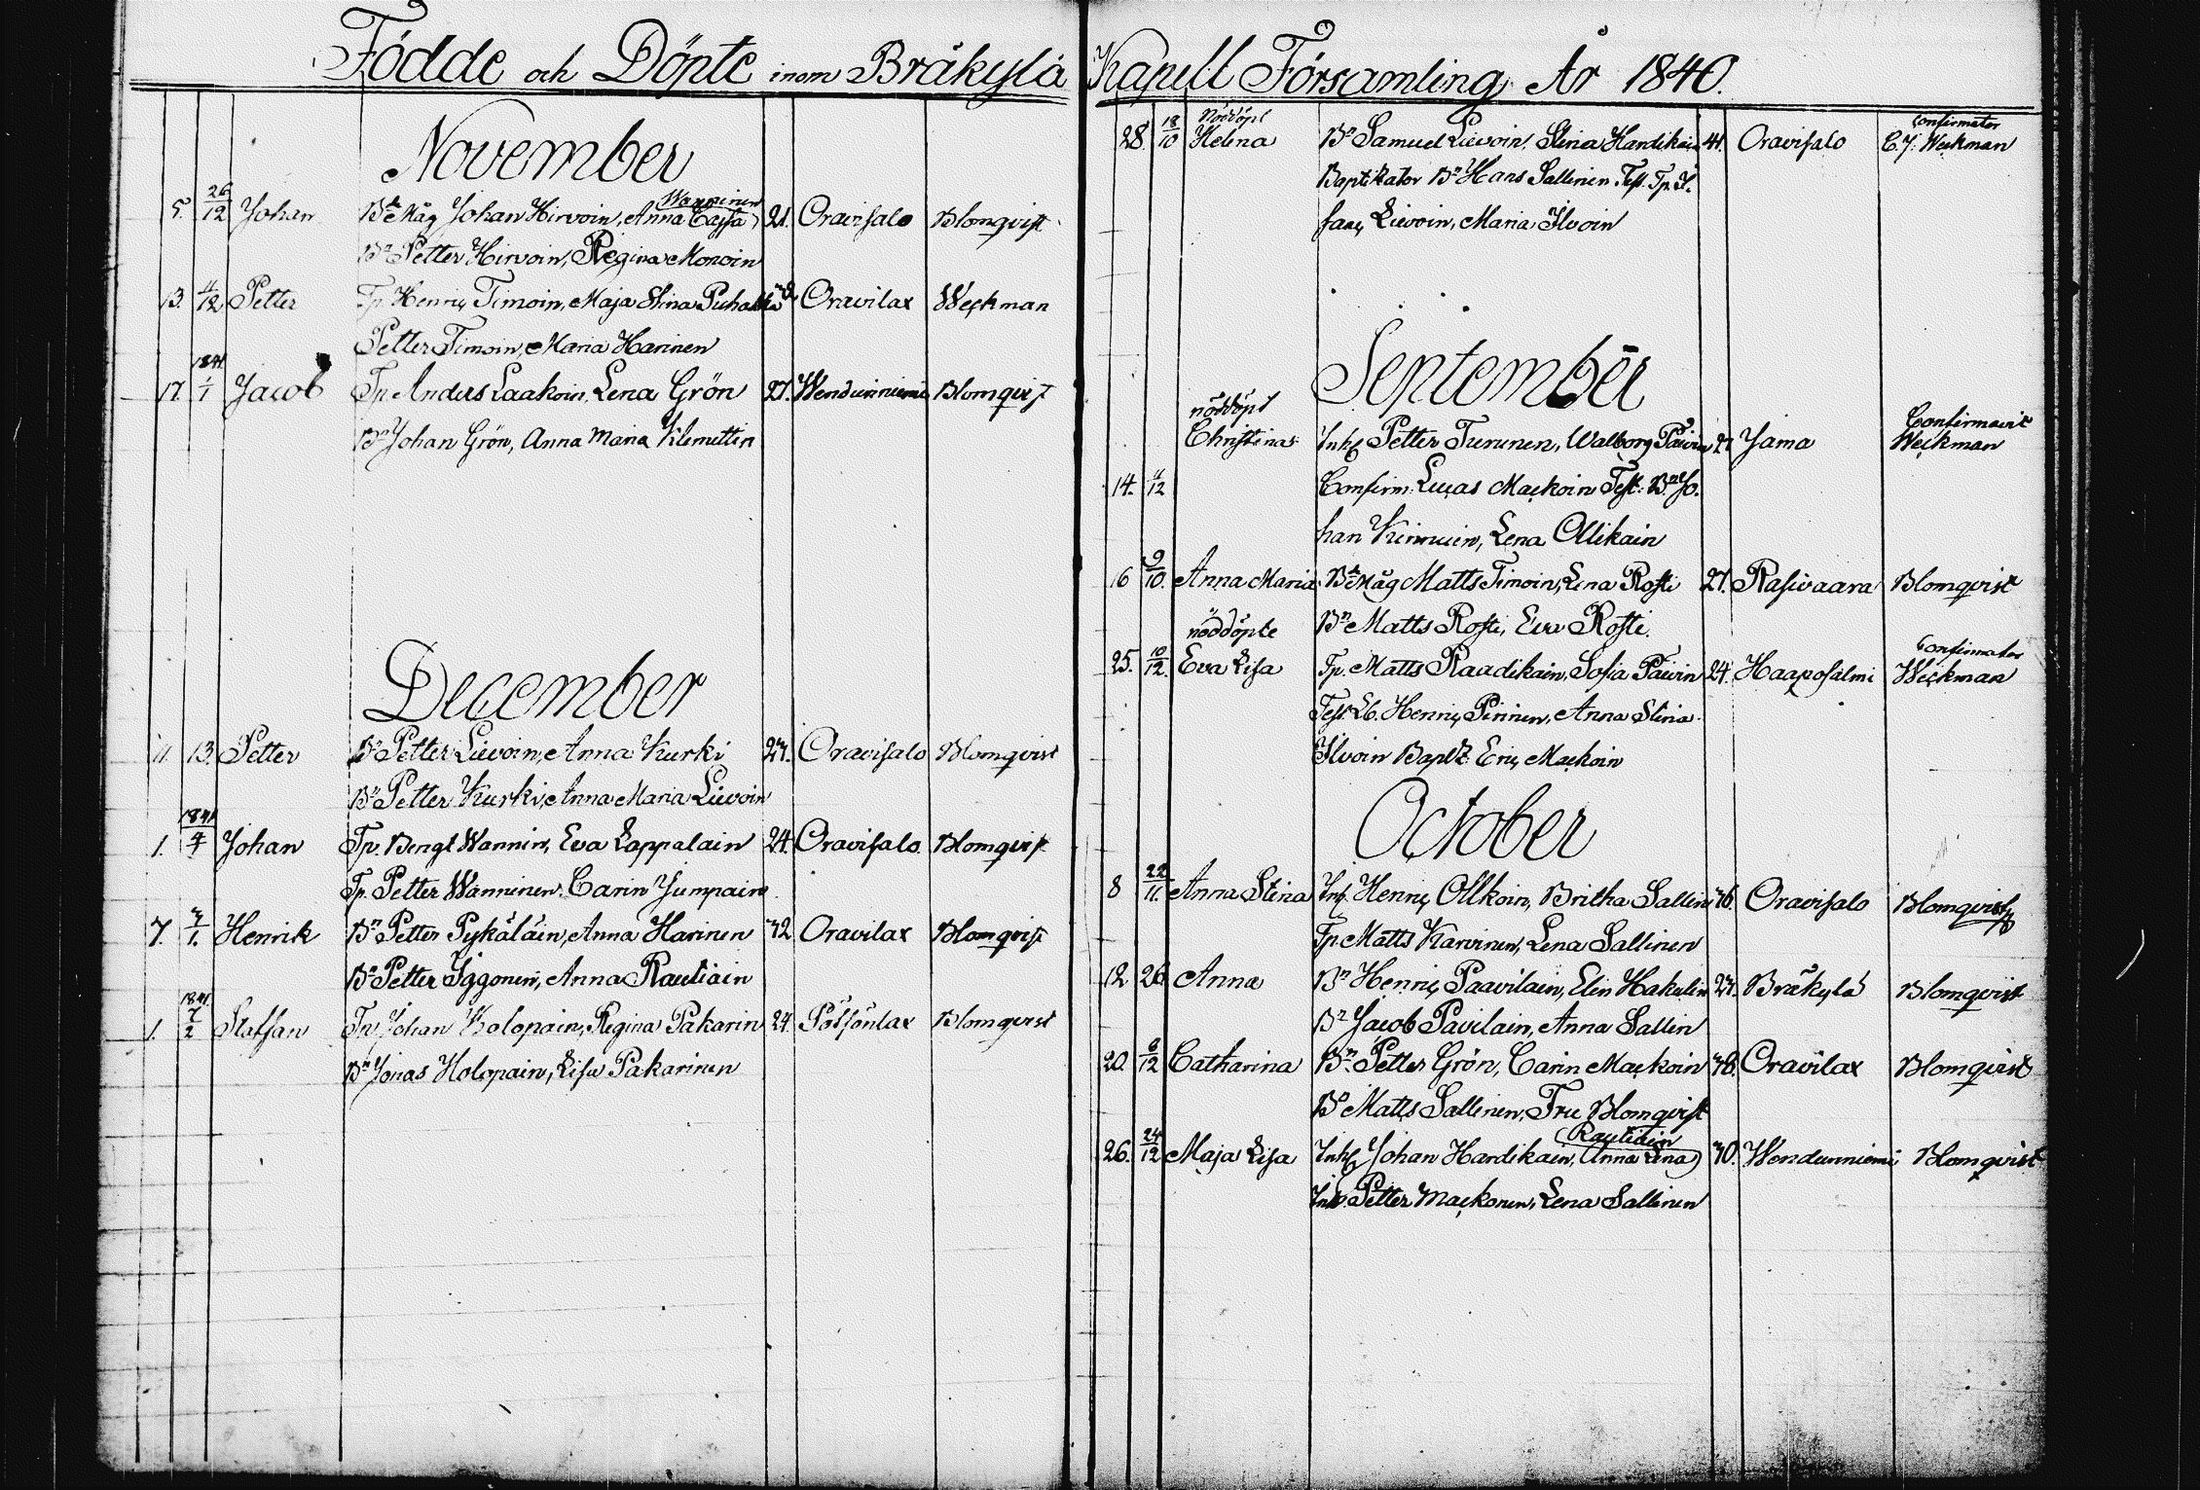 Födde och Döpte inom Bräkylä Kapell Församling År 1840.
November
5. 26/12 Johan Bde Måg Johan Hirvoin, Anna Cajsa Wanninen 21. Oravisalo Blomqvist
Bn Petter Hirvoin, Regina Monoin
13. 4/12 Petter Tp Henric Timoin, Maja Stina Puhakka Oravilax Weckman
Petter Timoin, Maria Harinen
1841
17. 1/1 Jacob Tp. Anders Laakoin, Lena Grön 27. Wendunniemi Blomqvist
Bn Johan Grön, Anna Maria Klemettin
December
11. 13. Petter Bn Petter Lievoin, Anna Kurki 27. Oravisalo Blomqvist
Bn Petter Kurki, Anna Maria Lievoin
1841
1. 4/1 Johan Tp. Bengt Wannin, Eva Lappalain 24. Oravisalo Blomqvist
Tp. Petter Wanninen, Carin Jumpain
7. 7/1. Henrik Bn Petter Pykäläin, Anna Harinen 32 Oravilax Blomqvist
Bn Petter Iggonen, Anna Rautiain
1841.
1. 7/2 Staffan Tp. Johan Holopain, Regina Pakarin 24. Pötsönlax Blomqvist
Bn Jonas Holopain, Lisa Pakarinen
Nöddöpt Confirmator
28. 18/10 Helena Bn Samuel Lievoin, Stina Handikain 41. Oravisalo C. J. Weckman
Baptisator Bn Hans Sallinen. Test. Tp. I.
saac Lievoin, Maria Ilvoin
September
nöddöpt Confirmavit
Christina Inh Petter Turunen, Walborg Päivin 27 Jama Weckman
14. 4/12 Confirm: Lucas Mackoin Test: Bn Jo.
han Kinnuin, Lena Ollikain
16 9/10. Anna Maria Bde Måg Matts Timoin, Lena Rosti 27. Rasivaara Blomqvist
Bn Matts Rosti, Eva Rosti.
nöddöpte Confirmator
25. 10/12. Eva Lisa Tp. Matts Raadikain, Sofia Päivin 24. Haaposalmi Weckman
Test. Lb. Henric Pirinen, Anna Stina
Ilvoin Bapt: Eric Mackoin
October
8 22/11. Anna Stina Inh. Henric Ollkoin, Britha Sallin 36. Oravisalo Blomqvist
Tp. Matts Karvinen, Lena Sallinen
12 26. Anna Bn Henric Paavilain, Elin Hakulin 27. Bräkylä Blomqvist
Bn Jacob Pavilain, Anna Sallin
20. 6/12 Catharina Bn. Petter Grön, Carin Mackoin 38. Oravilax Blomqvist
Bn Matts Sallinen, Fru Blomqvist
26. 24/12 Maja Lisa Inh Johan Handikain, Anna Lena Rautiain 30. Wendunniemi Blomqvist
Inh. Petter Mackonen, Lena Sallinen